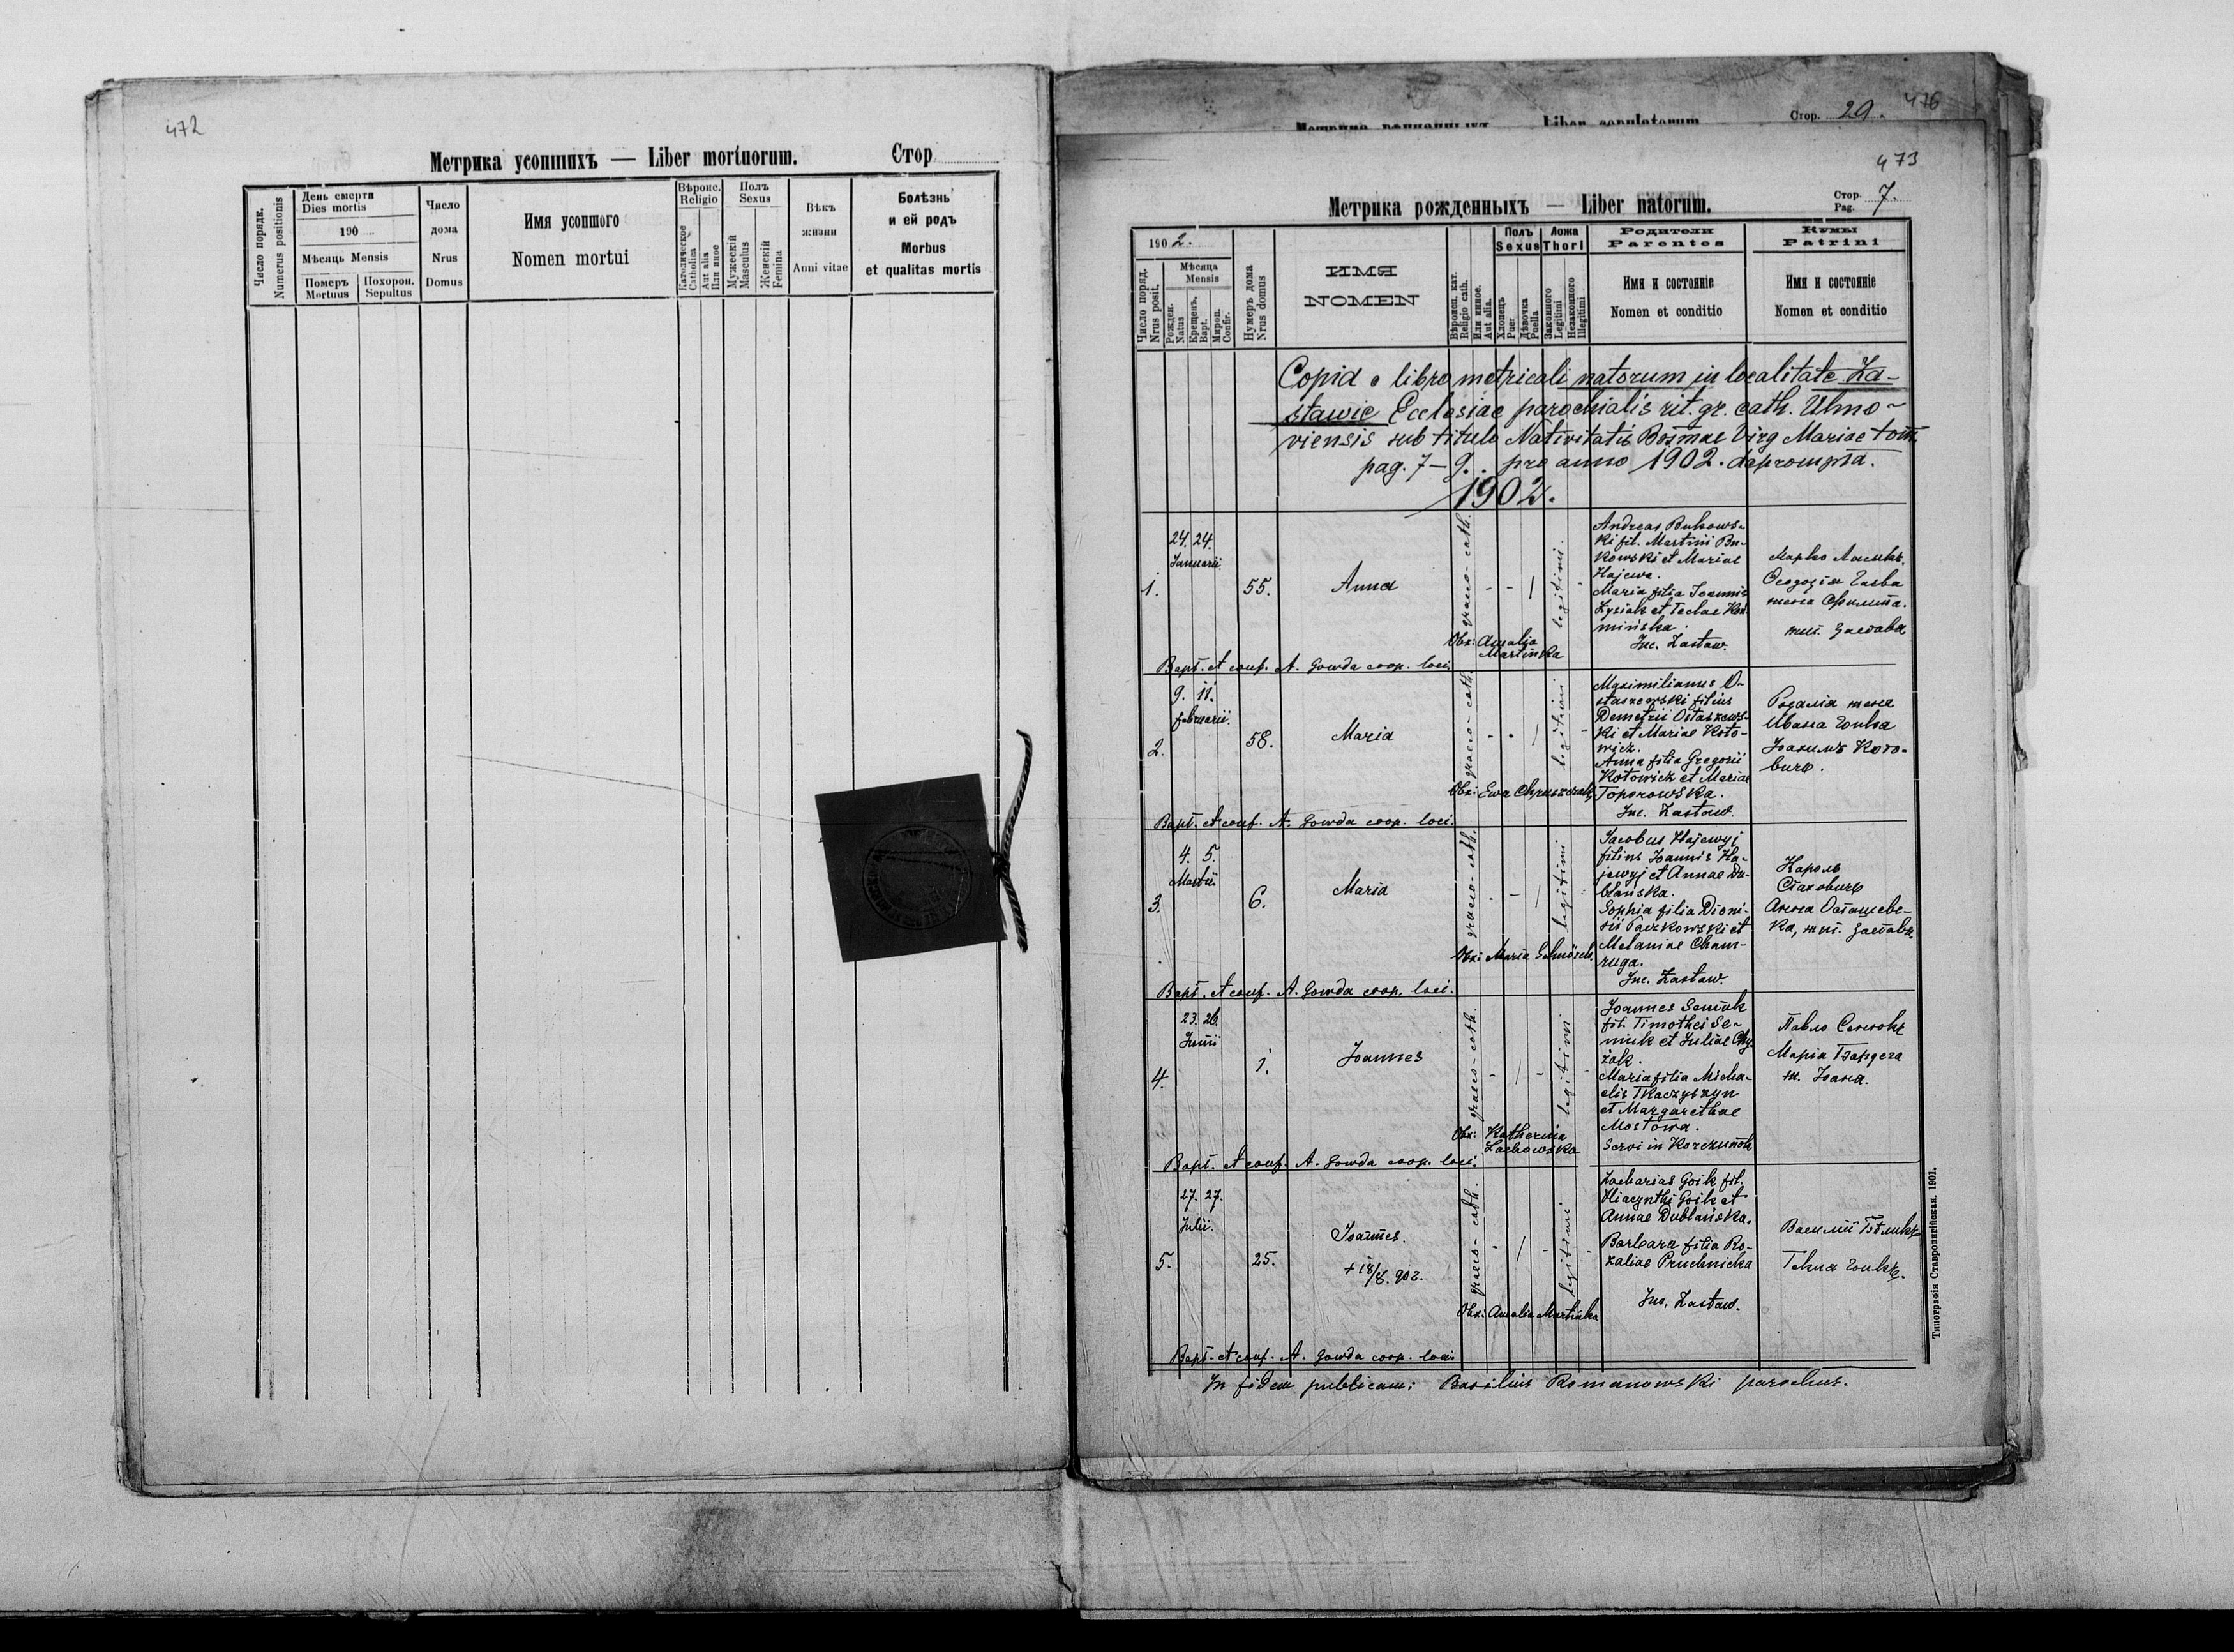 472
Метрика усопшихъ — Liber mortuorum. Стор
Число порядк.
Numerus positionis
День смерти
Dies mortis
190
Мѣсяць Mensis
Померъ
Mortuus
Похорон.
Sepultus
Число
дома
Nrus
Domus
Имя усопшого
Nomen mortui
Вѣроис.
Religio
Католическое
Catholica
Aut alia
Или иное
Полъ
Sexus
Мужескій
Masculus
Женскій
Femina
Вѣкъ
жизни
Anni vitae
Болѣзнь
и ей родъ
Morbus
et qualitas mortis
476
Стор. 29.
473
Метрика рожденныхъ — Liber natorum.
Стор.
Pag. 7.
190 2.
Число поряд.
Nrus posit.
Мѣсяца
Mensis
Рожден.
Natus
Крещенъ.
Bapt.
Миропом.
Confir.
Нумеръ дома
Nrus domus
ИМЯ
NOMEN
Вѣроисп. кат.
Religio cath.
Или иное.
Aut alia.
Полъ
Sexus
Хлопецъ
Puer
Дѣвочка
Puella
Ложа
Thori
Законного
Legitimi
Незаконного
Illegitimi
Родители
Parentes
Имя и состояніе
Nomen et conditio
Кумы
Patrini
Имя и состояніе
Nomen et conditio
Copia e libro metricali natorum in localitate Za-
stawie Ecclesiae parochialis rit. gr. cath. Uhno-
viensis sub titulo Nativitatis Virg Mariae tom.
pag. 7–9. pro anno 1902. deprompta.
1902.
1.
24. 24.
Januarii
55.
Anna
graeco-cath.
legitimi
Andreas Bukows-
ki fil. Martini Bu-
kowski et Mariae
Hajewa.
Maria filia Joannis
Zysiak et Teclae Koz-
mińska.
Inc. Zastaw.
Obs: Amalia
Martinska
Bapt. et conf. A. Gowda coop. loci.
2.
9. 11.
februarii.
58.
Maria
graeco-cath.
legitimi
Maximilianus O-
staszewski filius
Demetrii Ostaszews-
ki et Mariae Koto-
wicz.
Anna filia Gregorii
Kotowicz et Mariae
Toporowska.
Inc. Zastaw.
Розалія жена
Ивана Гойка
Іоакимъ Кото-
вичъ.
Obs: Ewa
Bapt. et conf. A. Gowda coop. loci.
3.
4. 5.
Martii
6.
Maria
graeco-cath.
legitimi
Jacobus Hajewyj
filius Joannis Ha-
jewyj et Annae Du-
blańska.
Sophia filia Dioni-
sii Paczkowski et
Melaniae Cham-
ruga.
Inc. Zastaw.
Кароль
Стаховичъ
Анна Осташевс-
ка, жит. Заставя.
Obs: Maria
Bapt. et conf. A. Gowda coop. loci.
4.
23. 26.
Junii
1.
Joannes
graeco-cath.
legitimi
Joannes Semiuk
fil. Timothei Se-
miuk et Juliae Chy-
zak.
Maria filia Micha-
elis Tkaczyszyn
et Margarethae
Mostowa.
Servi in
Павло
Марія
ж. Іоана.
Obs: Katherina
Lachowska
Bapt. et conf. A. Gowda coop. loci.
5.
27. 27.
Julii.
25.
Joannes.
+ 18/8. 902.
graeco-cath.
legitimi
Zacharias Goik fil.
Hiacynthi Goik et
Annae Dublańska.
Barbara filia Ro-
zaliae Pruchnicka
Inc. Zastaw.
Василій Бѣликъ
Текля Гойкъ.
Obs: Amalia Martinska
Bapt. et conf. A. Gowda coop. loci
In fidem publicam: Basilius Romanowski parochus.
Типографія Ставропигійская. 1901.